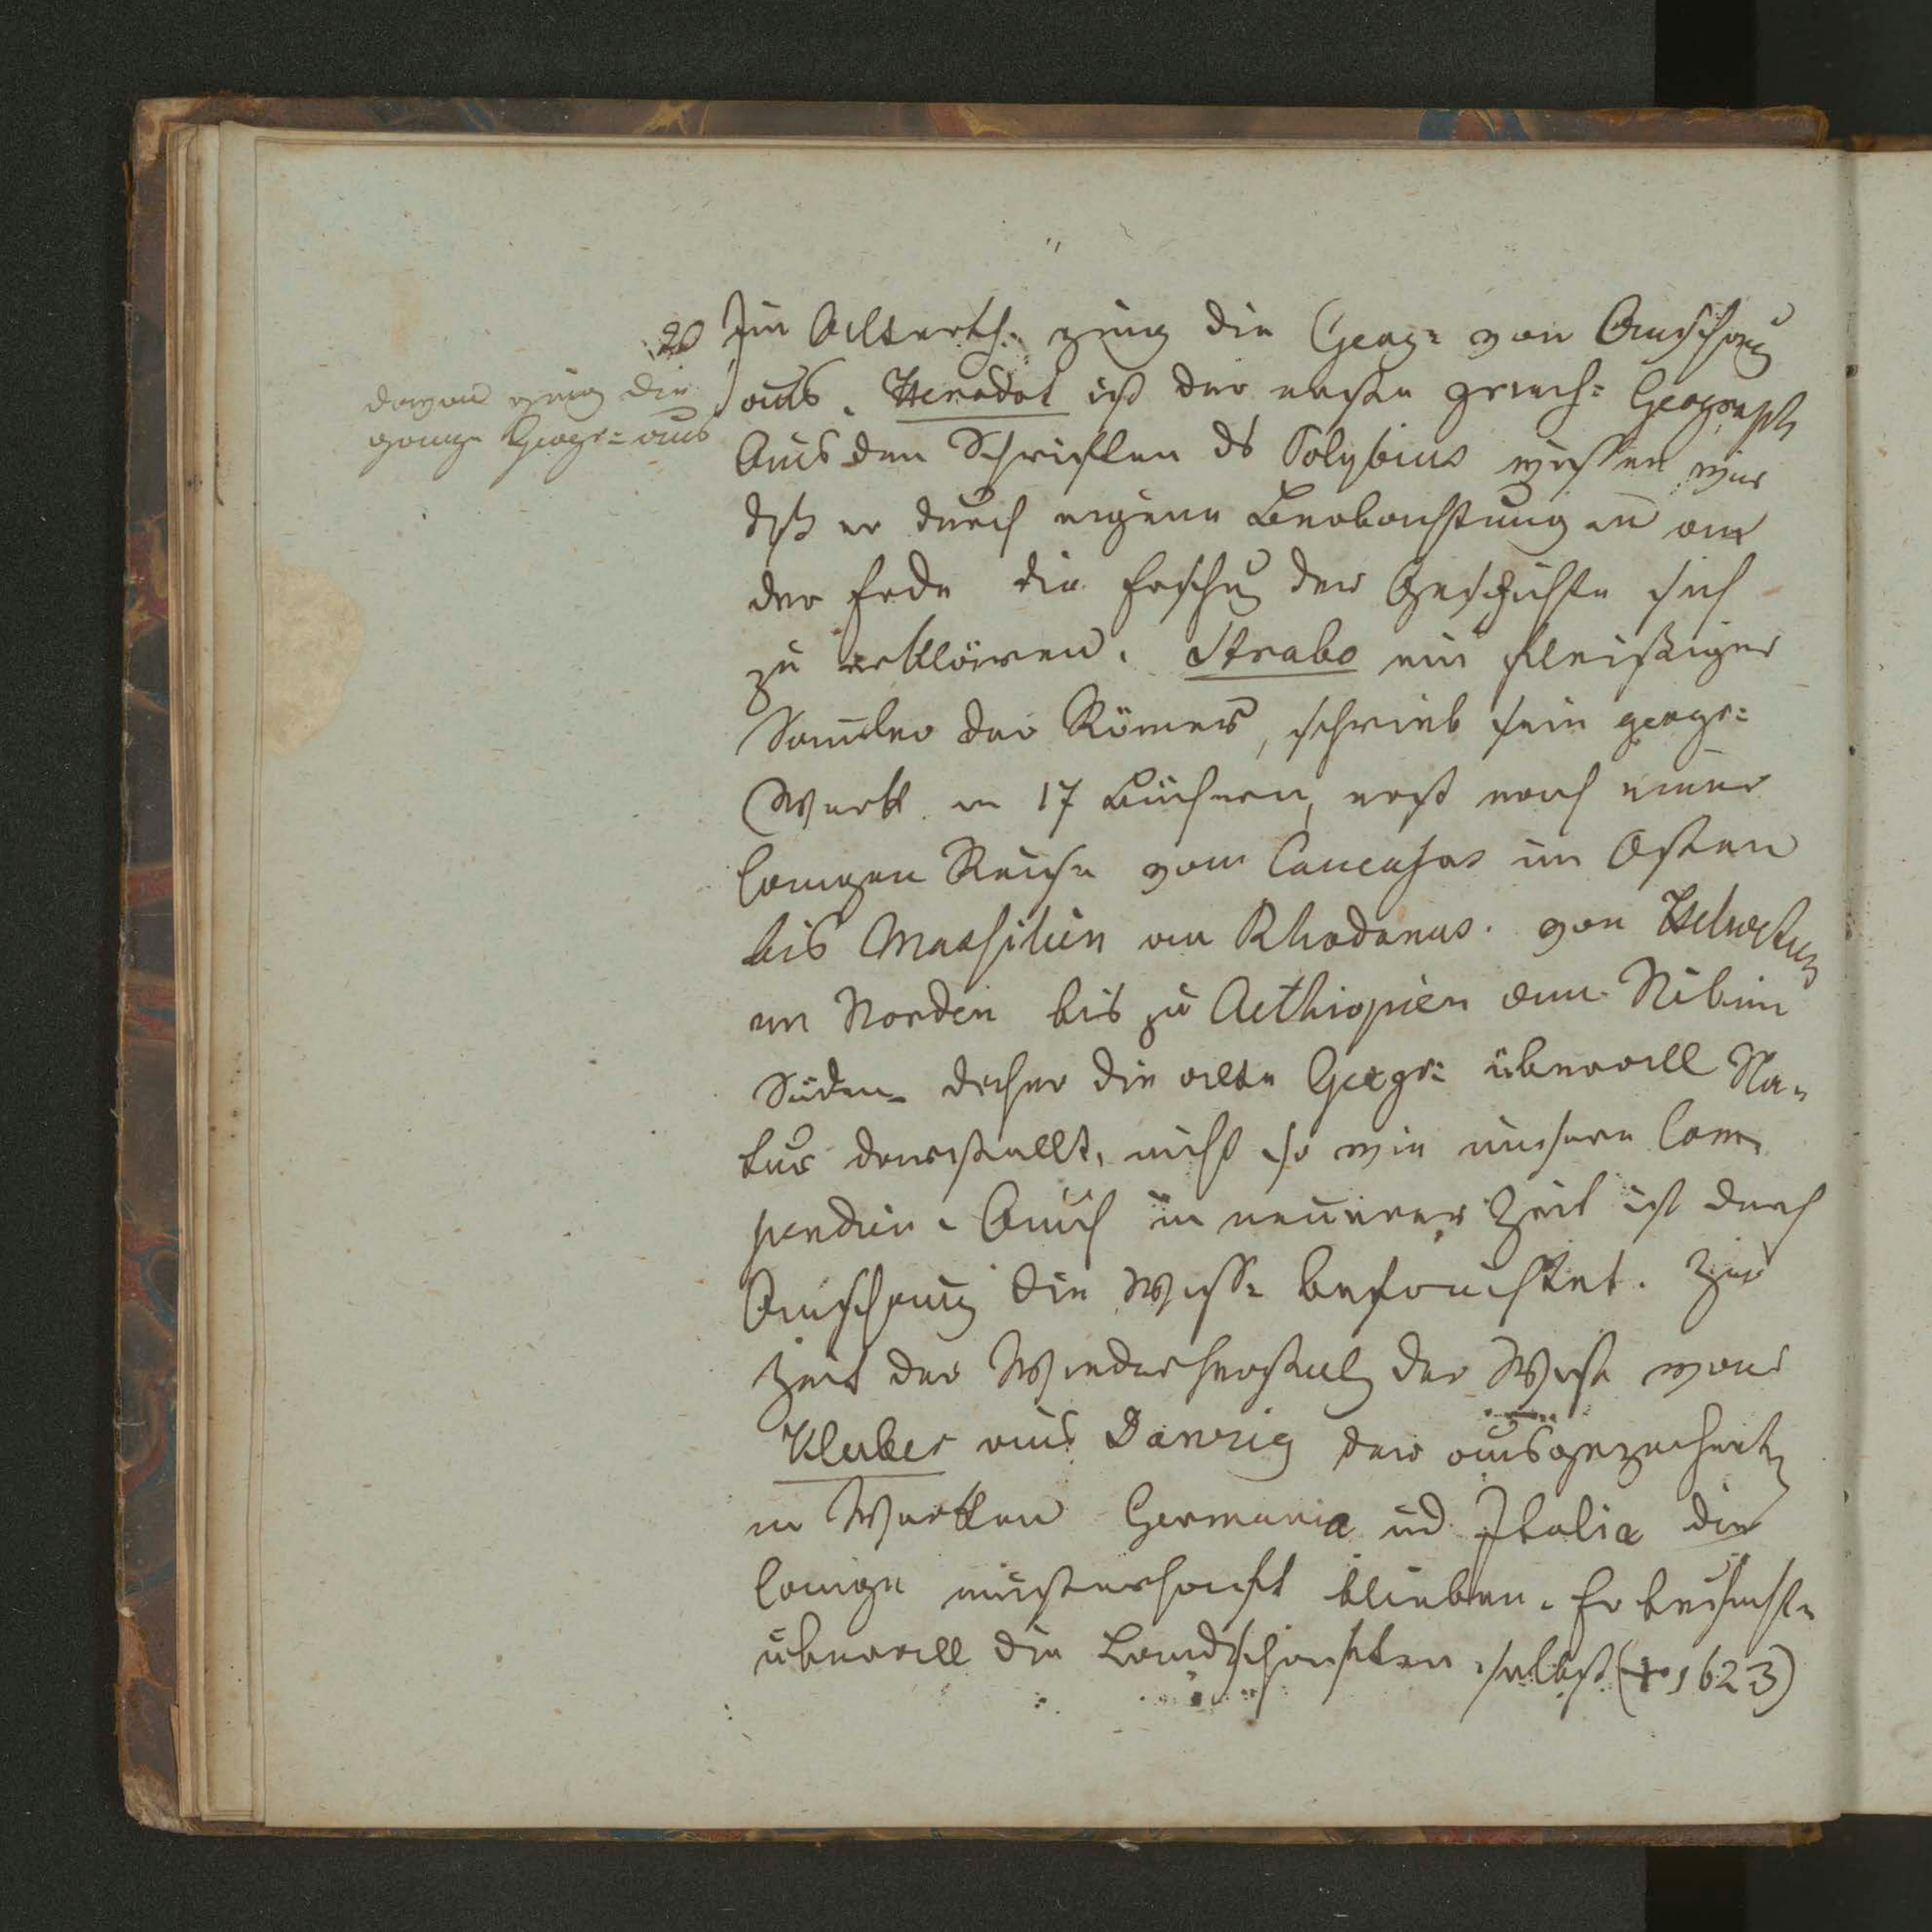 20 Im Alterth. ging die Geog= von Anschaug
davon ging die
ganze Geogr= aus
aus. Herodot ist der erste griech= Geograph
Aus den Schriften ds Polybius wissen wir
dß er durch eigene Beobachtung an
der Erde die Erschg der Geschichte sich
zu erklären. Strabo ein fleißiger
Samler der Römer, schrieb sein geogr=
Werk in 17 Büchern, erst nach einer
langen Reise vom Caucasus im Osten
bis Massilien am Rhodanus. von Helvetien
im Norden bis zu Aethiopien am Nil im
Süden. daher die alte Geogr= überall Na=
tur darstellt, nicht so wie unsere Com=
pendien. Auch in neuerer Zeit ist durch
Anschaug die Wiss= befruchtet. Zur
Zeit der Wiederherstelg der Wiss war
Kluber aus Danzig der ausgezeichnet
in Werken Germania ud Italia die
lange musterhaft blieben. Er besuchte
überall die Landschaften selbst († 1623)